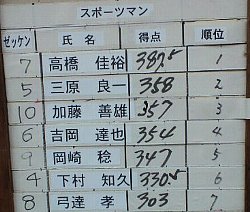 スポーツマン
ゼッケン 氏名 得点 順位
7 高橋 佳裕 387.5 1
5 三原 良一 358 2
10 加藤 善雄 357 3
6 吉岡 達也 354 4
9 岡崎 稔 347 5
4 下村 知久 330.5 6
8 弓達 孝 303 7